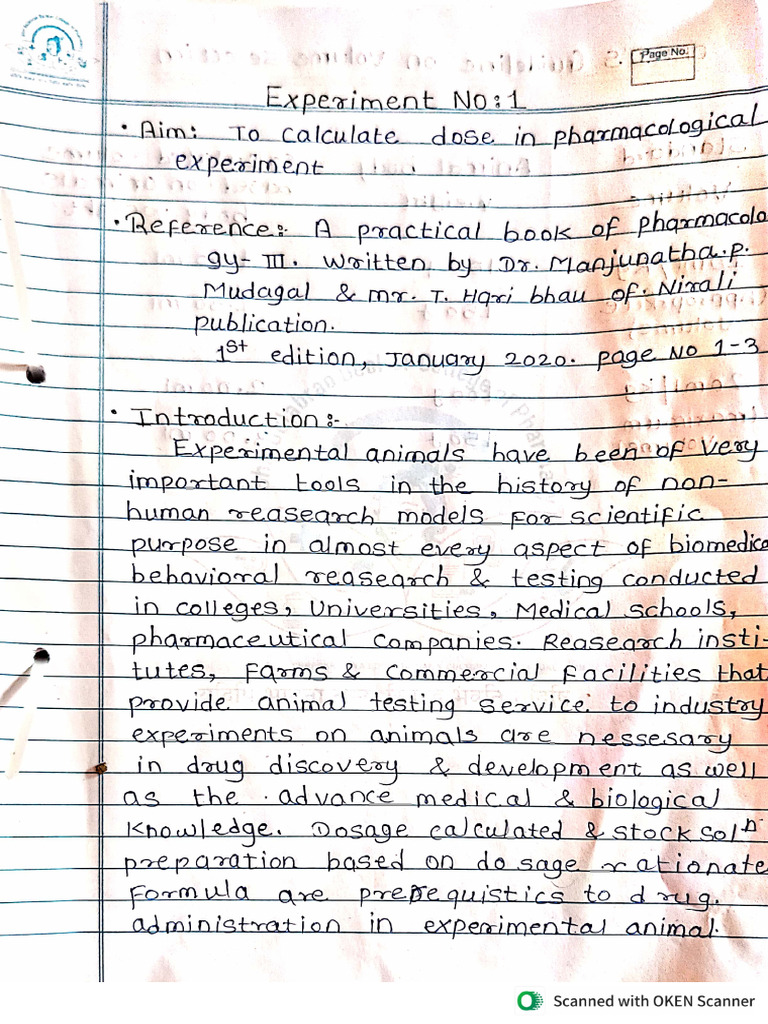 Page No.
Experiment No: 1
• Aim: To calculate dose in pharmacological
experiment
• Reference:- A practical book of pharmacolo
gy-III. written by Dr. Manjunatha.p.
Mudagal & mr. T. Hari bhau of. Nirali
publication.
1st edition, January 2020. page No 1-3
• Introduction:-
Experimental animals have been of very
important tools in the history of non-
human reasearch models for scientific
purpose in almost every aspect of biomedica
behavioral reasearch & testing conducted
in colleges, Universities, Medical schools,
pharmaceutical companies. Reasearch insti-
tutes, Farms & commercial facilities that
provide animal testing service to industry
experiments on animals are nessesary
in drug discovery & development as well
as the advance medical & biological
knowledge. Dosage calculated & stock solⁿ
preparation based on dosage rationate
formula are prerequistics to drug.
administration in experimental animal.
Scanned with OKEN Scanner